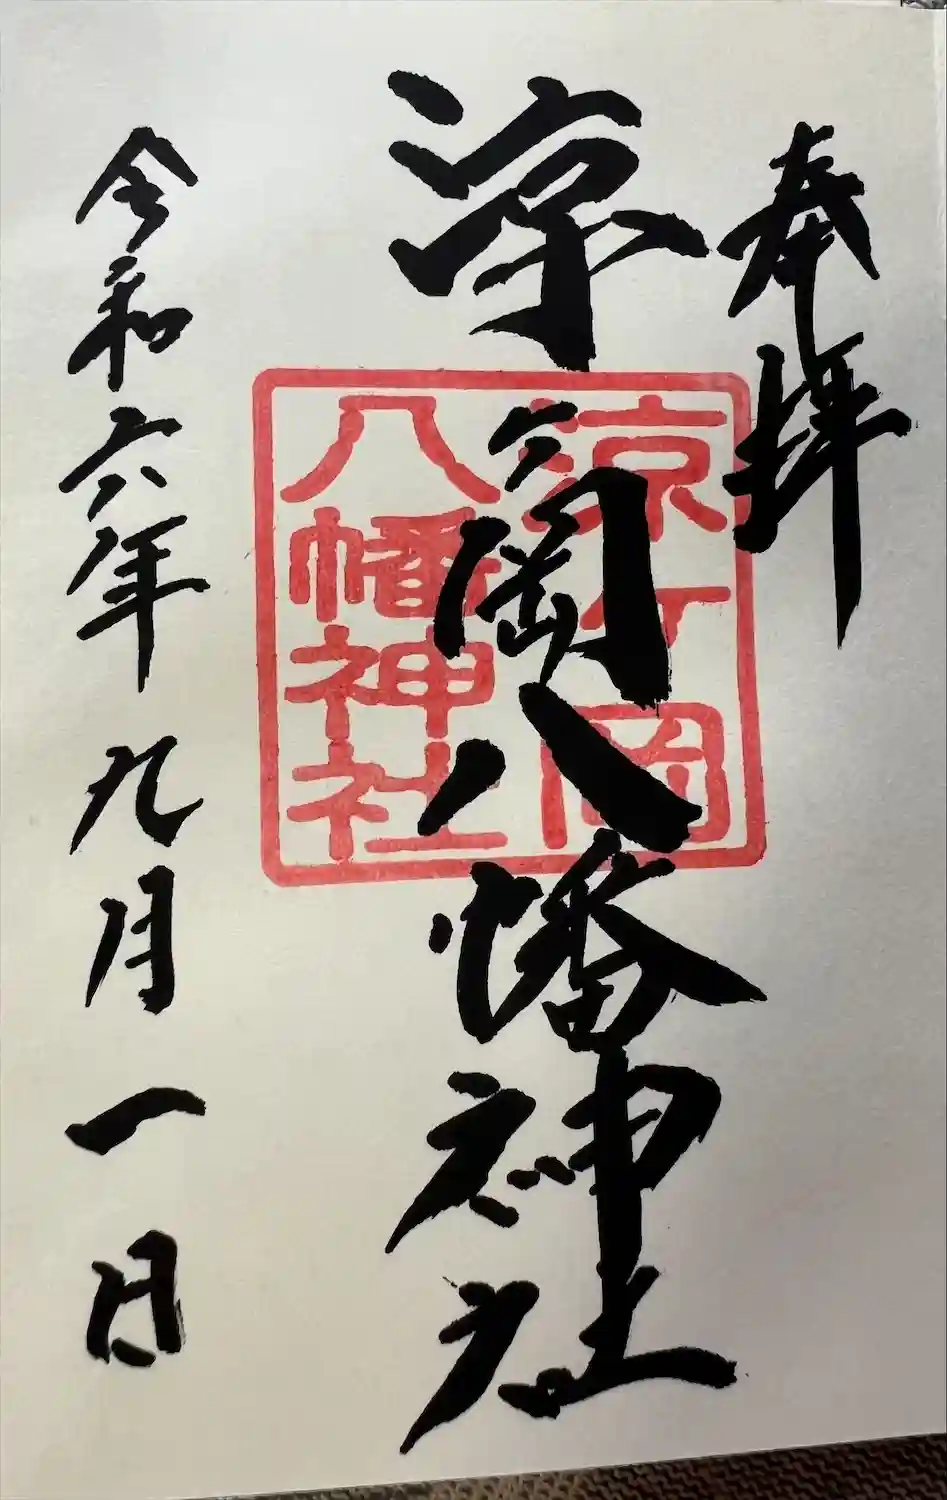 奉拝
涼ケ岡八幡神社
涼ケ岡
八幡神社
令和六年九月一日